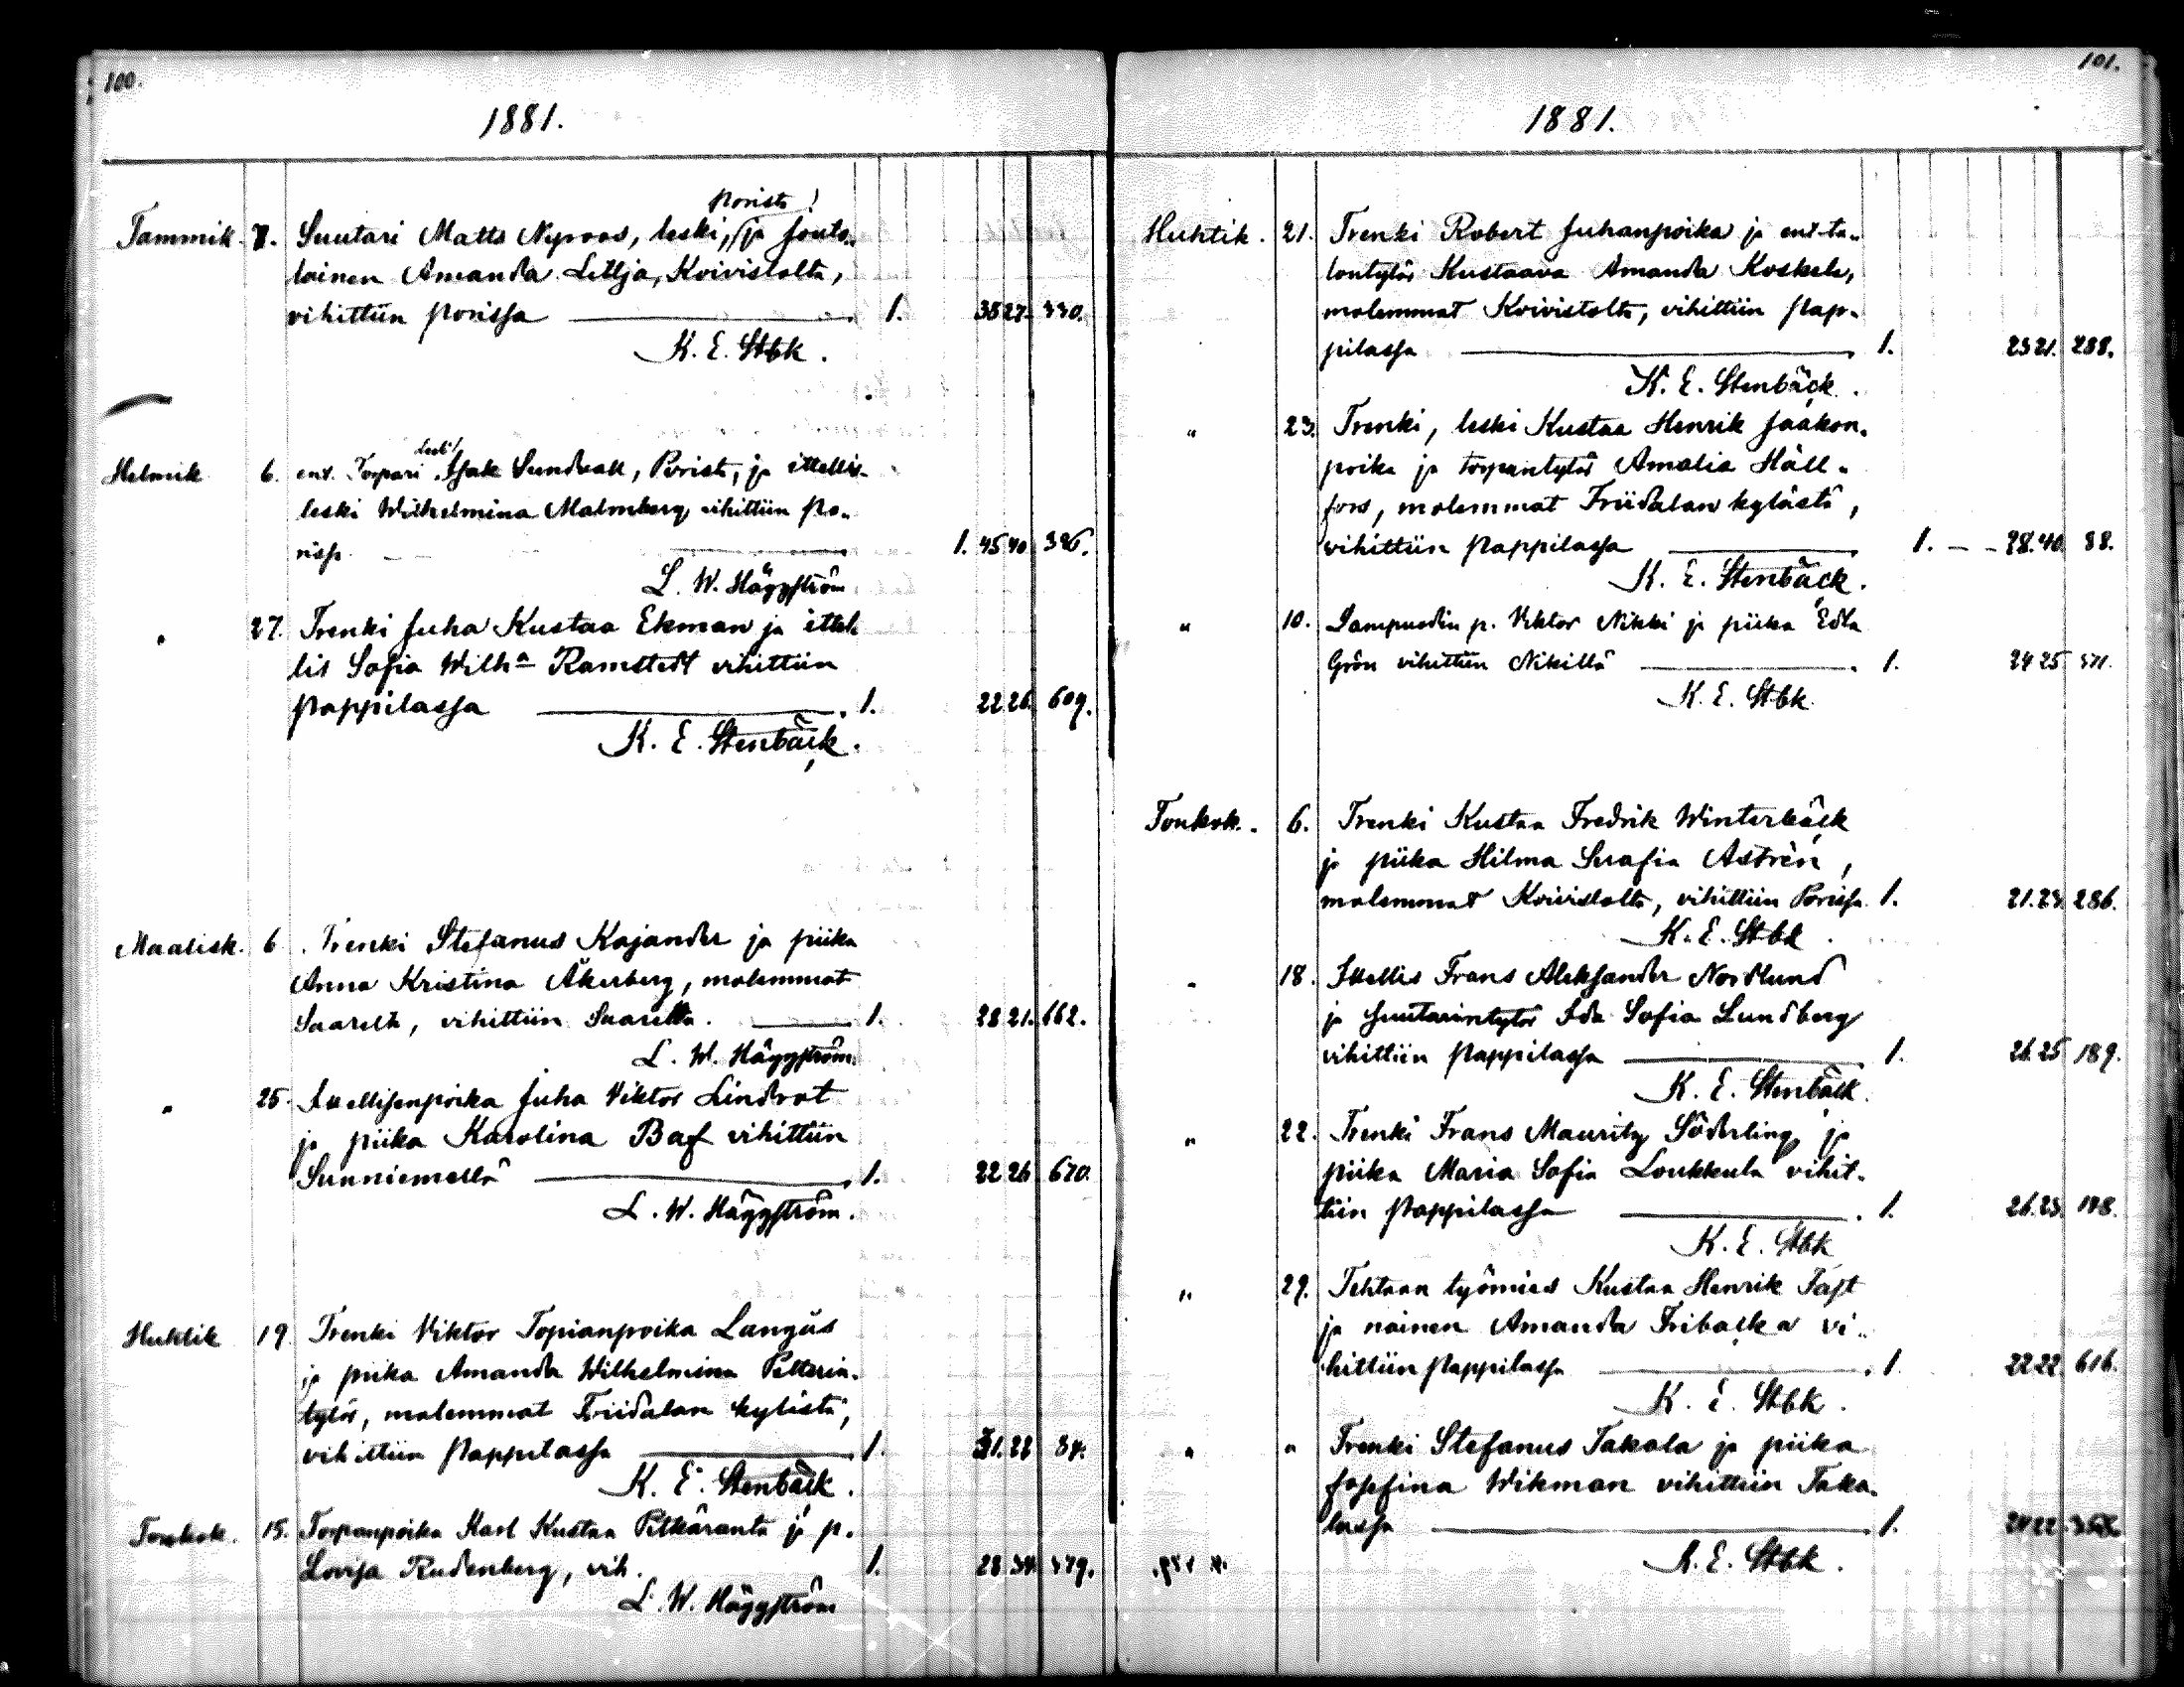 100.
1881.
Porista!
Tammik. 7. Suutari Matts Nyroos, leski, ja jouto-
lainen Amanda Lillja, Koivistolta,
vihittiin Porissa 1. 35 27. 330.
K. E. Stbk.
leski
Helmik 6. ent. Torpari Isak Sundvall, Porista, ja ittellis-
leski Wilhelmina Malmberg vihittiin Po-
rissa 1. 45 40 326.
L. W. Häggström
" 27. Trenki Juha Kustaa Ekman ja ittel-
lis Sofia Wilha Ramstedt vihittiin
Pappilassa 1. 22 26. 609.
K. E. Stenbäck.
Maalisk. 6. Trenki Stefanus Kajander ja piika
Anna Kristina Åkerberg, molemmat
Saarelta, vihittiin Saarella. 1. 28 21. 662.
L. W. Häggström.
" 25. Ittellisenpoika Juha Viktor Lindrot
ja piika Karolina Baf vihittiin
Sunniemellä 1. 22 26 670.
L. W. Häggström.
Huhtik 19. Trenki Viktor Topianpoika Langüs
ja piika Amanda Wilhelmina Petterin-
tytär, molemmat Friidalan kylästä,
vihittiin Pappilassa 1. 31. 22 84.
K. E. Stenbäck.
Toukok. 15. Torpanpoika Karl Kustaa Pitkäranta ja p.
Lovisa Rudenberg, vih. 1. 28 34. 379.
L. W. Häggström
101.
1881.
Huhtik. 21. Trenki Robert Juhanpoika ja ent. ta-
lontytär Kustaava Amanda Koskela,
molemmat Koivistolta, vihittiin Pap-
pilassa 1. 23 21. 288.
K. E. Stenbäck.
" 23. Trenki, leski Kustaa Henrik Jaakon-
poika ja torpantytär Amalia Häll-
fors, molemmat Friidalan kylästä,
vihittiin Pappilassa 1. 28. 40. 88.
K. E. Stenbäck.
" 10. Lampuodin p. Viktor Nikki ja piika Edla
Grön vihittiin Nikillä 1. 24 25 371.
K. E. Stbk.
Toukok. 6. Trenki Kustaa Fredrik Winterbäck
ja piika Hilma Serafia Astrén,
molemmat Koivistolta, vihittiin Porissa 1. 21. 23. 286.
K. E. Stbk.
" 18. Ittellis Frans Aleksander Nordlund
ja suutarintytär Ida Sofia Lundberg
vihittiin Pappilassa 1. 26. 25 189.
K. E. Stenbäck.
" 22. Trenki Frans Mauritz Söderling ja
piika Maria Sofia Loukkula vihit-
tiin Pappilassa 1. 26. 23. 198.
K. E. Stbk
" 29. Tehtaan työmies Kustaa Henrik Fast
ja nainen Amanda Fribacka vi-
hittiin Pappilassa 1. 22 22. 616.
K. E. Stbk.
" " Trenki Stefanus Takala ja piika
Josefina Wikman vihittiin Taka-
lassa 1. 24 22.
K. E. Stbk.